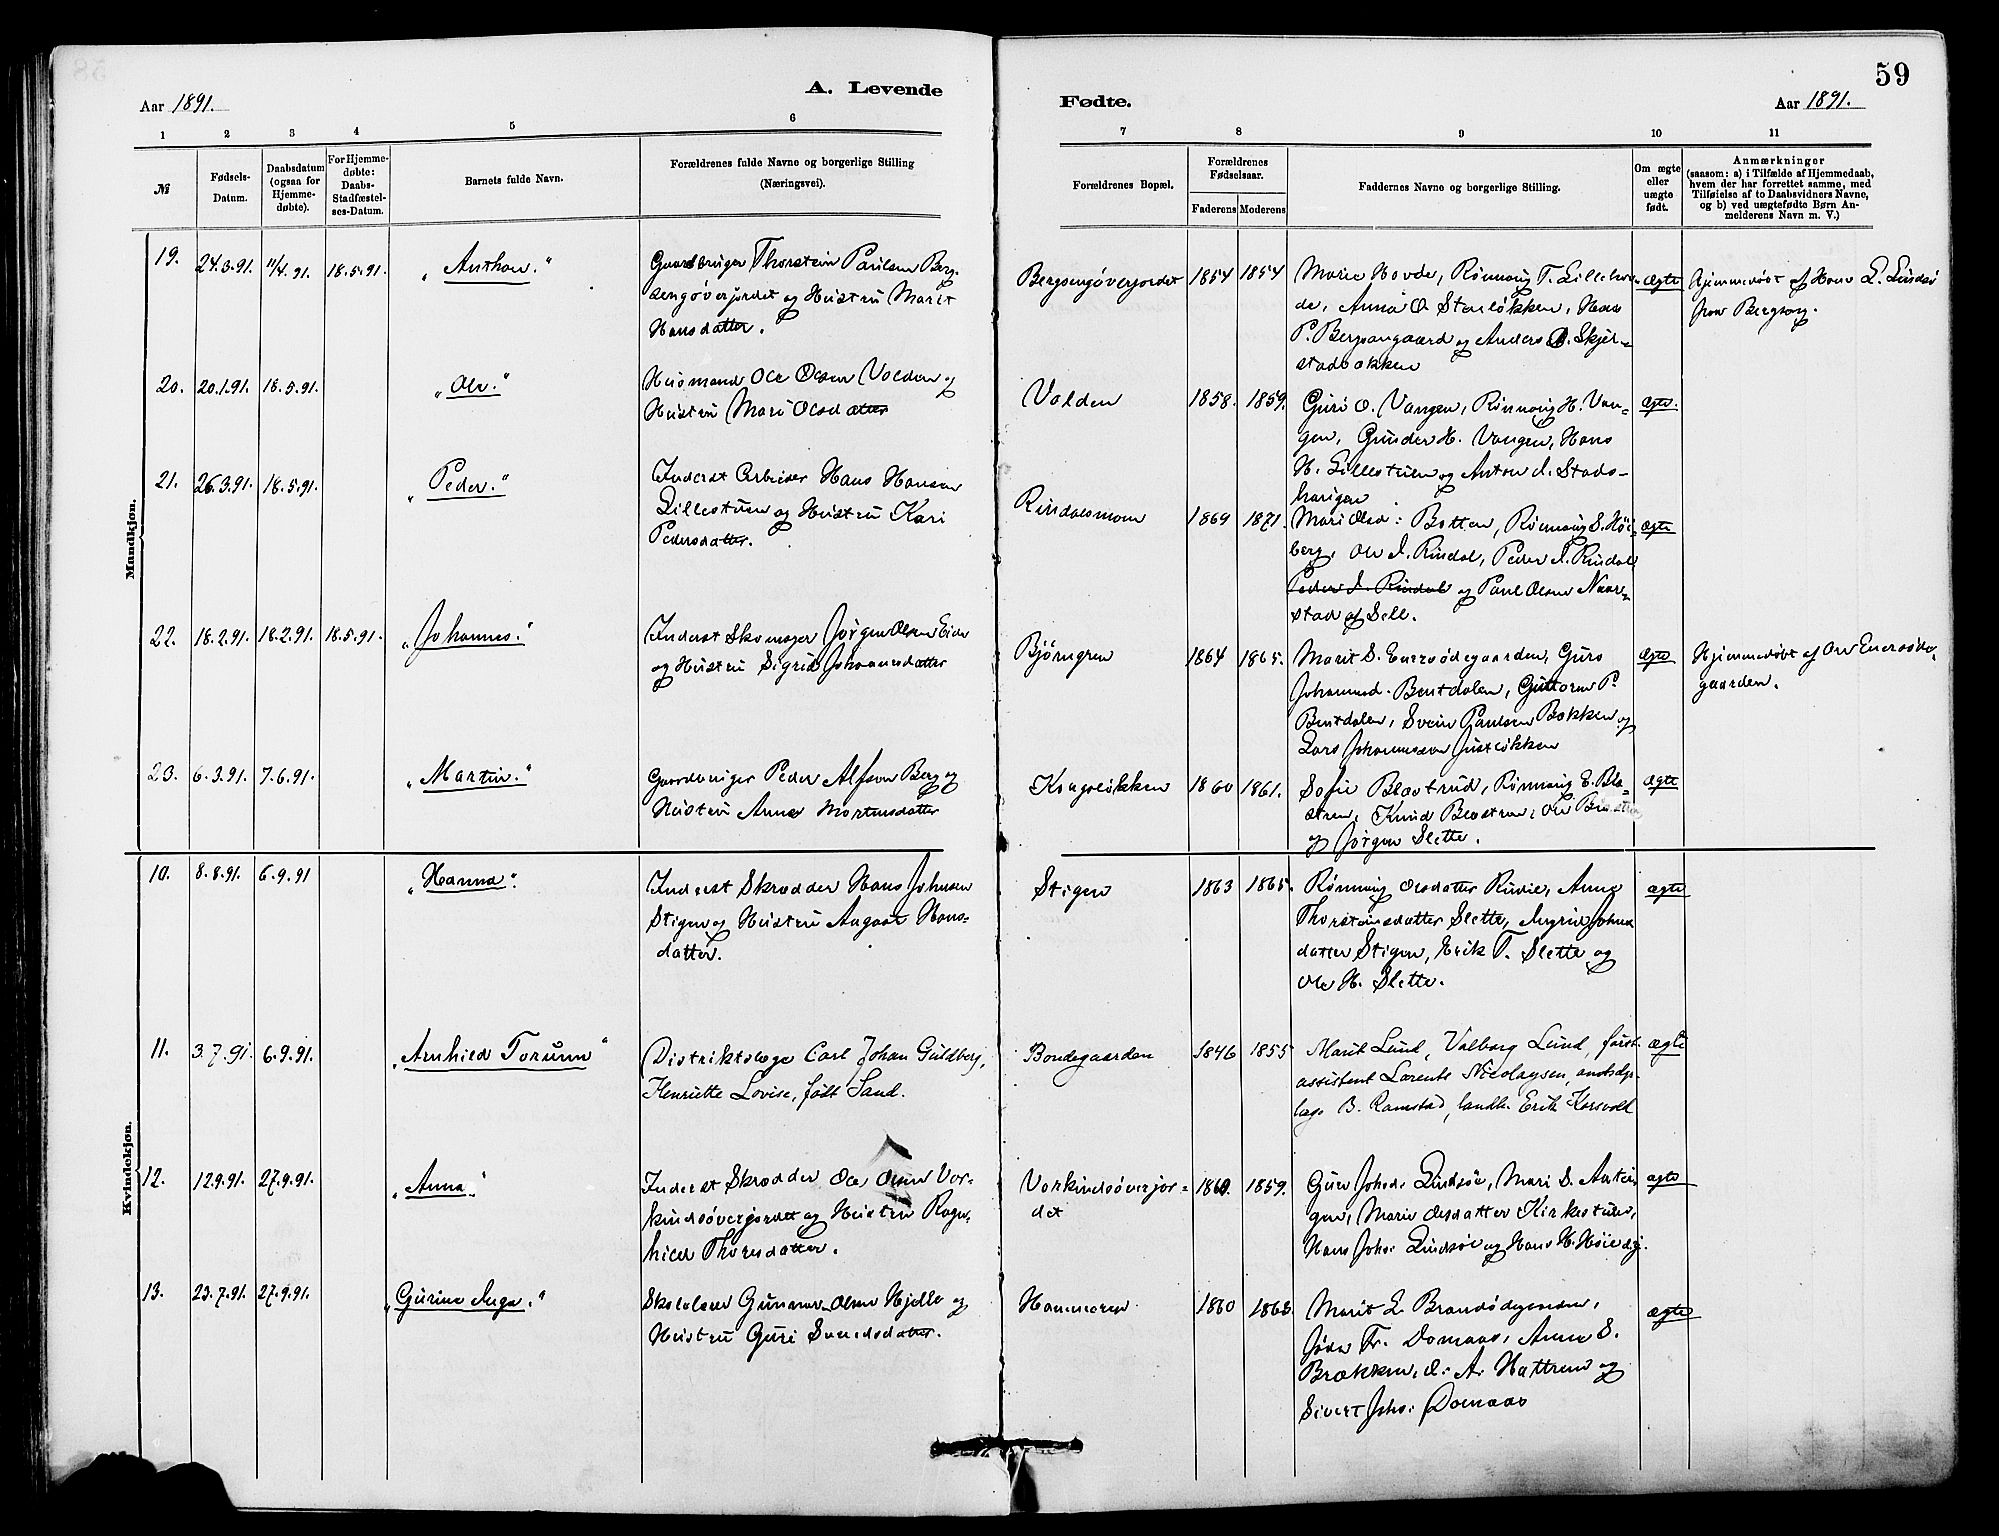 59
Aar 1891.
A. Levende
Fødte.
Aar 1891.
1 2 3 4 5 6 7 8 9 10 11
№
Fødsels-
Datum.
Daabsdatum
(ogsaa for
Hjemme-
døbte).
For Hjemme-
døbte:
Daabs-
Stadfæstel-
ses-Datum.
Barnets fulde Navn.
Forældrenes fulde Navne og borgerlige Stilling
(Næringsvei).
Forældrenes Bopæl.
Forældrenes
Fødselsaar.
Faderens Moderens
Faddernes Navne og borgerlige Stilling.
Om ægte
eller
uægte
født.
Anmærkninger
(saasom: a) i Tilfælde af Hjemmedaab,
hvem der har forrettet samme, med
Tilføielse af to Daabsvidners Navne,
og b) ved uægtefødte Børn An-
melderens Navn m. V.)
Mandkjøn.
19. 24.3.91. 11/4.91. 18.5.91.
„Anthon."
Gaardbruger Thorstein Paulsen Berg-
sengøverjordet og Hustru Marit
Hansdatter.
Bergsengøverjordet 1854 1854
Marie Hovde, Rønnaug T. Lilleho-
de, Anna O. Stenløkken, Hans
P. Bergsengaard og Anders O. Skjer-
stadbakken
ægte
Hjemmedøbt af Hans L. Lindsø
fra Bergseng.
20. 20.1.91. 18.5.91.
„Ole."
Husmand Ole Olsen Volden og
Hustru Mari Olsdatter
Volden 1858. 1859.
Guri O. Vangen, Rønnaug H. Van-
gen, Gunder H. Vangen, Hans
H. Lillestuen og Anton J. Stads-
haugen
ægte.
21. 26.3.91. 18.5.91.
„Peder."
Inderst Arbeider Hans Hansen
Lillestuen og Hustru Kari
Pedersdatter.
Rindalsmoen 1869 1871.
Mari Olsd: Botten, Rønnaug S. Høi-
berg, Ole J. Rindal, Peder J. Rindal
Peder J. Rindal og Paul Olsen Naar-
stad af Sell.
ægte
22. 18.2.91. 18.2.91. 18.5.91.
„Johannes."
Inderst Skomager Jørgen Olsen Eide
og Hustru Sigrid Johannesdatter
Bjørngren 1864 1865.
Marit S. Enersødegaarden, Guro
Johannesd. Bentdalen, Guttorm P.
Bentdalen, Svein Paulsen Bakken og
Lars Johannessen Justløkken
ægte
Hjemmedøbt af Ole Enersøde-
gaarden.
23. 6.3.91. 7.6.91.
„Martin."
Gaardbruger Peder Alfsen Berg og
Hustru Anne Mortensdatter
Kongsløkken 1860 1861.
Sofie Blæstrud, Rønnaug E. Blæ-
stren, Knud Blæstren, Ole
og Jørgen Slette.
ægte
Kvindekjøn.
10. 8.8.91. 6.9.91
„Hanna".
Inderst Skrædder Hans Johnsen
Stigen og Hustru Aagaat Hans-
datter.
Stigen 1863 1865.
Rønnaug Olsdatter Rusie, Anne
Thorsteinsdatter Slette, Ingrid Johns
datter Stigen, Erik T. Slette og
Ole H. Slette.
ægte
11. 3.7.91. 6.9.91.
„Arnhild Torunn"
Distriktslæge Carl Johan Guldberg,
Henriette Lovise, født Sand.
Bondegaarden 1846 1855
Marit Lund, Valborg Lund, forst-
assistent Lorents Nicolaysen, amtsdyr-
læge B. Ramstad, landh. Erik Korsvold
ægte
12. 12.9.91. 27.9.91.
„Anna."
Inderst Skrædder Ole Olsen Vor-
kindsøverjordet og Hustru Ragn-
hild Thoresdatter.
Vorkindsøverjor-
det
1860. 1859.
Guro Johsd. Lindsøe, Mari S. Austin-
gen, Marie Olsdatter Kirkestuen,
Hans Johs. Lindsøe og Hans H. Høiedj.
ægte
13. 23.7.91. 27.9.91.
„Gurine Inga."
Skolelærer Gunnar Olsen Hjelle og
Hustru Guri Svendsdatter.
Hammeren 1860 1868
Marit L. Brandødegaarden,
Jøda Fr. Domaas, Anne S.
Brækken, O. A. Hattrem og
Sivert Johs. Domaas
ægte